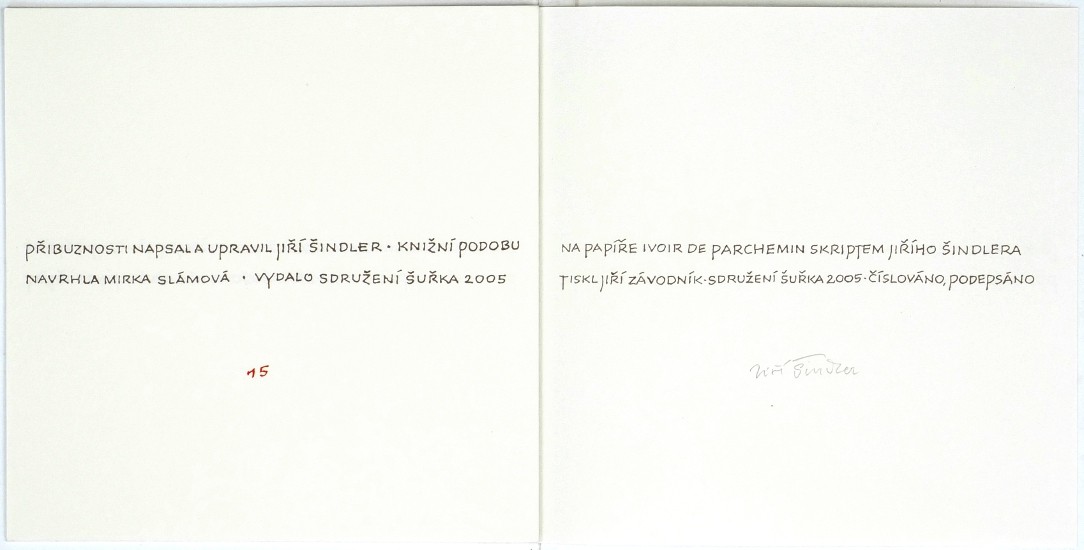 PŘIBUZNOSTI NAPSAL A UPRAVIL JIŘÍ ŠINDLER · KNIŽNÍ PODOBU
NAVRHLA MIRKA SLÁMOVÁ · VYDALO SDRUŽENÍ ŠUŘKA 2005
15
NA PAPÍŘE IVOIR DE PARCHEMIN SKRIPTEM JIŘÍHO ŠINDLERA
TISKL JIŘÍ ZÁVODNÍK · SDRUŽENÍ ŠUŘKA 2005 · ČÍSLOVÁNO, PODEPSÁNO
Jiří Šindler